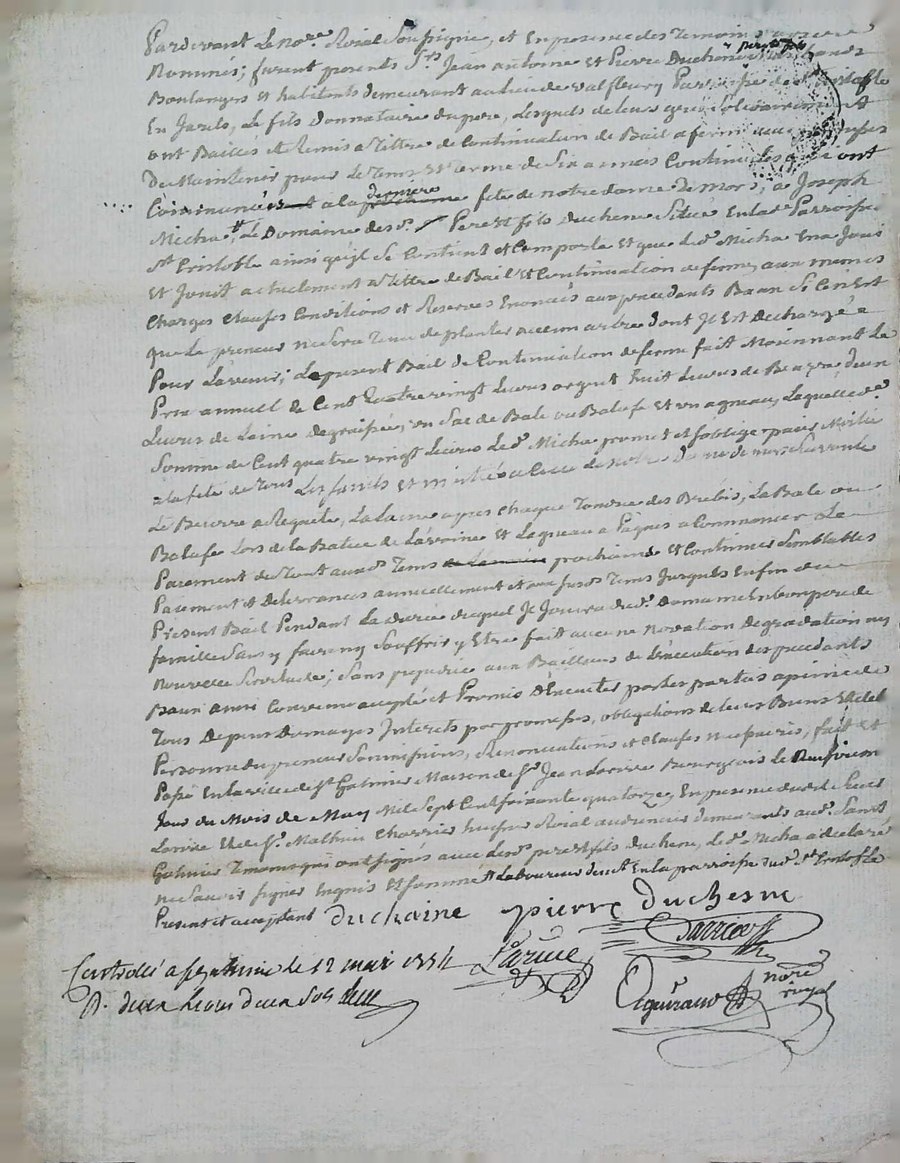 Pardevant le nore. Roial Soussigné, et En presence des Temoins
pere et fils
Nommés; furent presents Srs. Jean antoine Et Pierre Duchene
Boulangers Et habitants demeurant au lieu de valfleury Parroisse de st
En Jarets, Le fils Donnataire du pere, Lesquels de leur gré solidairement
ont Baillés et Remis a Tittre de Continuation de Bail a ferme
De Maintenir pour Le Tems Et Terme de Six années Continuelles qui ont
derniere
Commencés a la fete de notre dame De mars, a Joseph
Micha Le Domaine des srs. Pere Et fils duchene Situé En lad. Parroisse
st Cristofle ainsi qu'il Se Contient Et Comporte Et que led. Micha En a Joui
Et Jouit actuelement a Tittre de Bail Et Continuation de ferme, aux memes
Charges Clauses Conditions et Reserves Enoncés aux precedants Baux Si Ce n'Est
que Le preneur ne Sera Tenu de planter aucun arbre dont Il Est Dechargé
Pour L'avenir; Le present Bail de Continuation de ferme fait Moiennant Le
Prix annuel de Cent quatre vingt Livres argent huit Livres de Beurre deux
Livres de Laine degraissée, un Sac de Bale ou Balufe Et un agneau, Laquelle de.
Somme de Cent quatre vingt Livres Led. Micha promet et s'oblige payer Moitié
a la fete de Tous Les saints et moitié a Celle de notre Dame de mars Suivante
Le Beurre a Requete, La Laine apres chaque Tondue des Brebis, La Bale ou
Balufe Lors de la Batue de L'avoine Et L'agneau a Paques a Commencer Le
Paiement du Tout auxd. Tems prochains Et Continuer Semblables
Paiement et Delivrances annuellement et aux susd. Tems Jusqu'es En fin du
Présent Bail Pendant La durée duquel Il Jouira dud. Domaine En bon pere de
famille Sans y faire ny Souffrir y Etre fait aucune novation degradation ny
Nouvelle Servitude; Sans prejudice aux Bailleurs de L'execution des precedants
Baux ainsi Convenu accepté et Promis D'Executer par les parties a peine de
Tous Depens Domages Interets par promesses, obligations de leurs Biens Et de la
Personne du preneur Soumissions, Renonciations et Clauses necessaires, fait et
Passé En la ville de st Galmier Maison de Sr. Jean Larive Bourgeois le
Jour du Mois de May Mil Sept Cent soixante quatorze, En presence dud. Sieur
Larive Et de sr. Mathieu Charrier huissier Roial audiencier demeurants aud. Saint
Galmier Temoins qui ont signés avec lesd. pere et fils duchene, led. Micha a declaré
ne Savoir signer Enquis Et sommé Laboureur demt. En la parroisse dud. st Cristofle
Present et acceptant duchaine pierre Duchesne
Larive
nore royal
Controllé a st galmier le 12 mai 1774
R. deux Livres deux sols